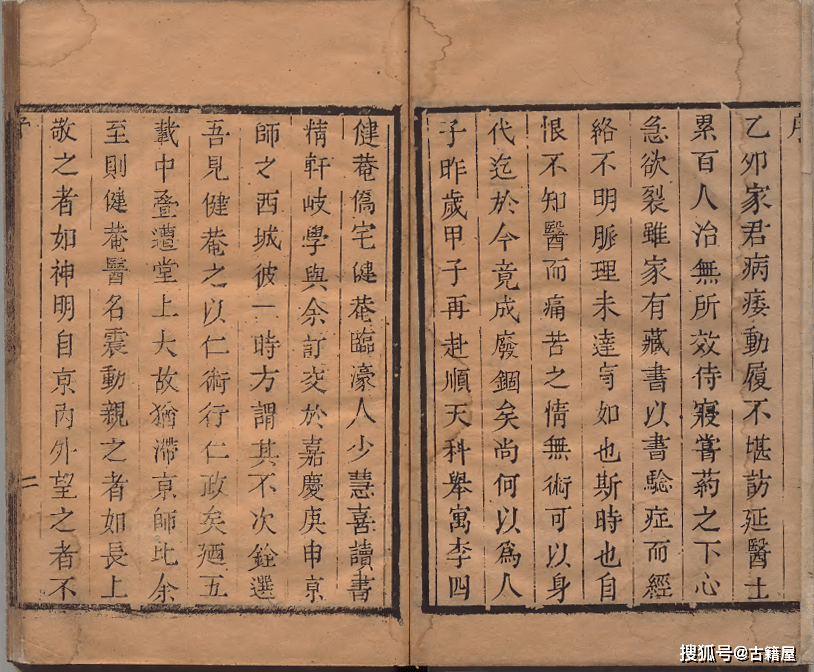 序
乙夘家君病痿動履不堪訪延醫士
累百人治無所效侍寢嘗葯之下心
急欲裂雖家有藏書以書驗症而經
絡不明脈理未達奇如也斯時也自
恨不知醫而痛苦之情無術可以身
代迄於今竟成廢錮矣尚何以爲人
子昨歲甲子再赴順天科舉寓李四
健菴僑宅健菴臨濠人少慧喜讀書
精軒岐學與余訂交於嘉慶庚申京
師之西城彼一時方謂其不次銓選
吾見健菴之以仁術行仁政矣廼五
載中叠遭堂上大故猶滯京師比余
至則健菴醫名震動親之者如長上
敬之者如神明自京內外望之者不
二
搜狐号@古籍屋